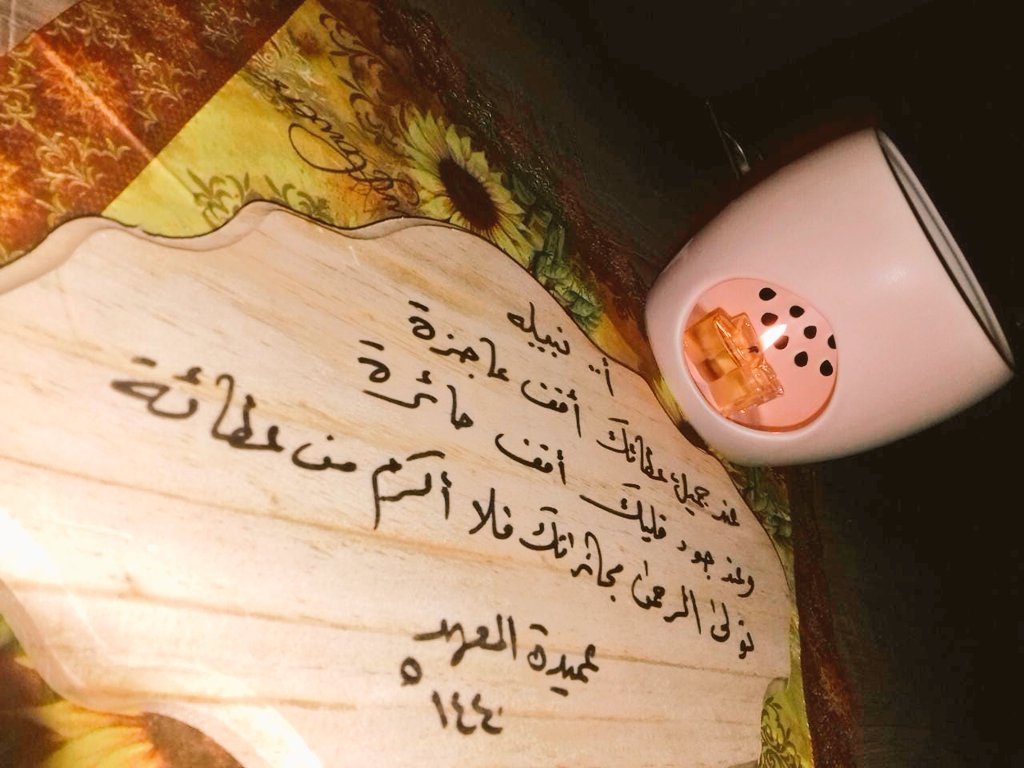 أ. نبيله
عند جميل عطائك أقف عاجزة
وعند جود فليك أقف حائرة
تولى الرحمن مجازاتك فلا أكرم من عطائه
عميدة المعهد
١٤٤٠ ه